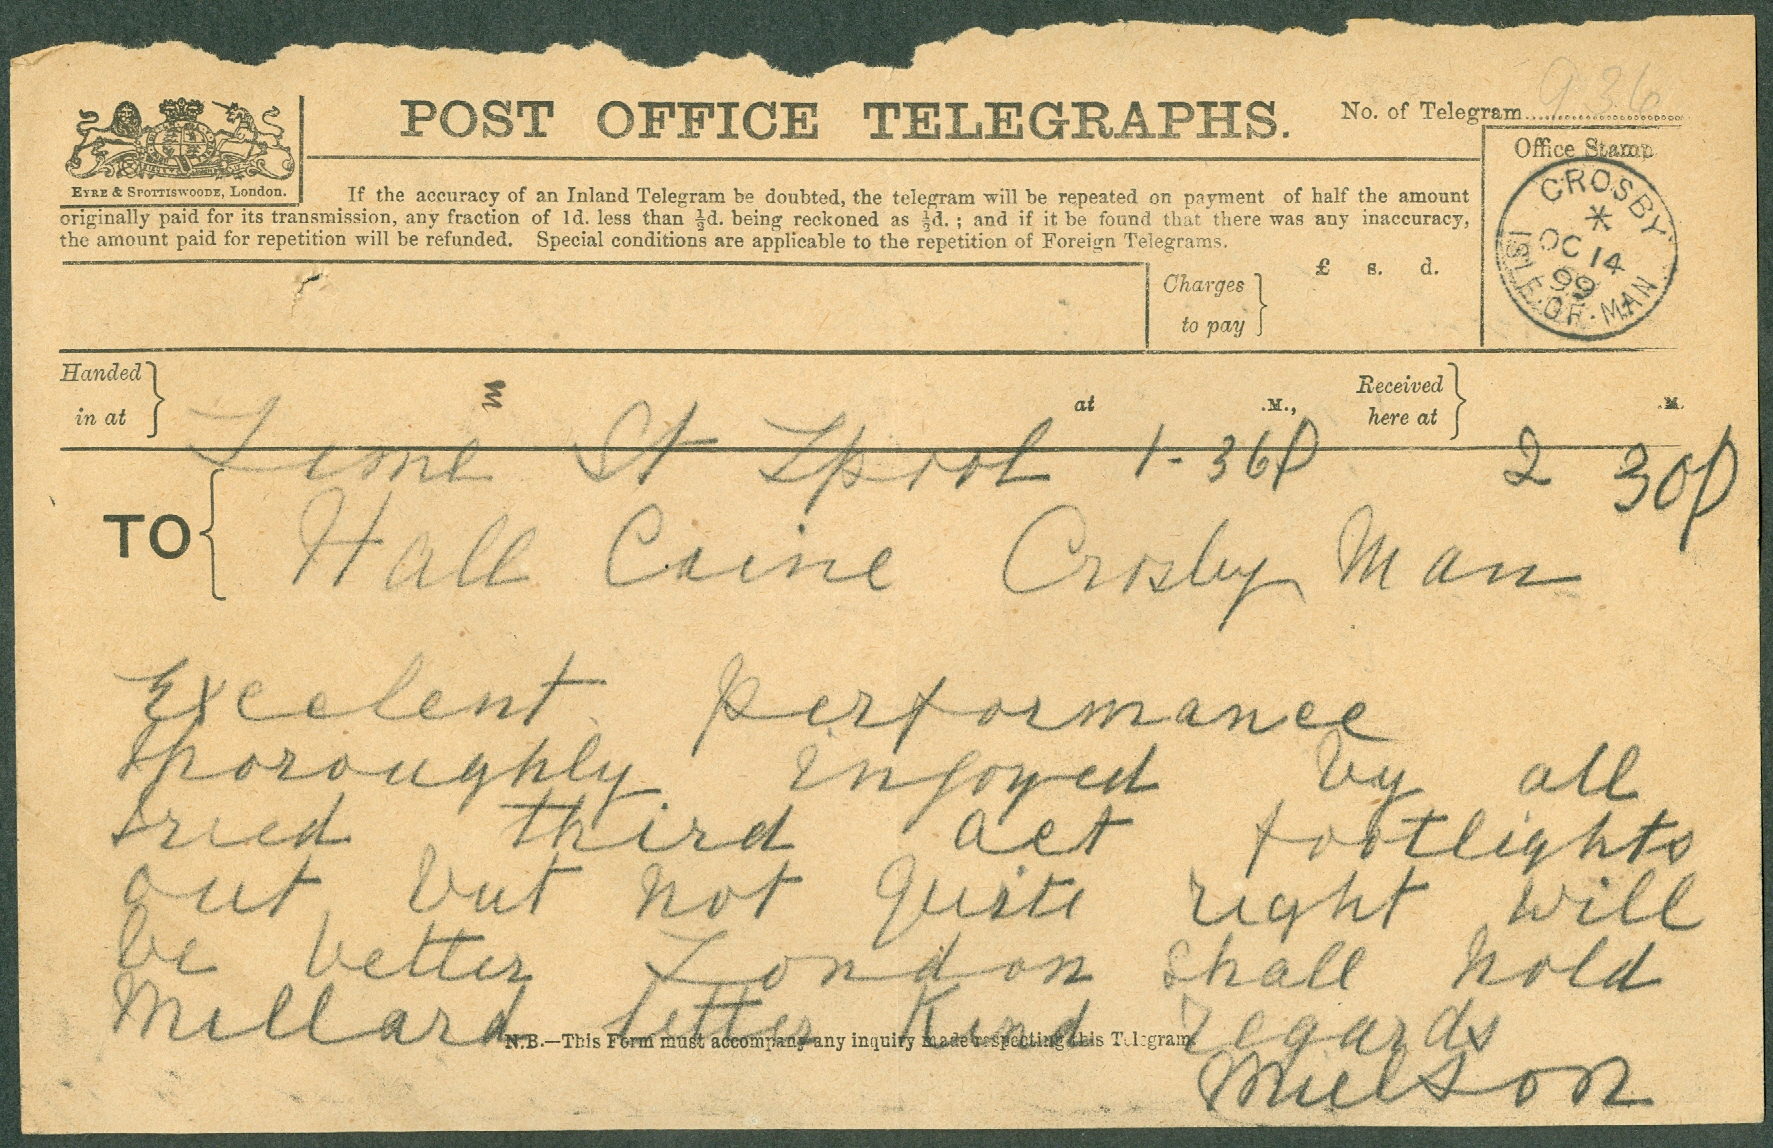 POST OFFICE TELEGRAPHS.
No. of Telegram 936
EYRE & SPOTTISWOODE, LONDON.
Office Stamp
CROSBY
OC 14
99
ISLE.OF.MAN
If the accuracy of an Inland Telegram be doubted, the telegram will be repeated on payment of half the amount
originally paid for its transmission, any fraction of 1d. less than ½d. being reckoned as ½d.; and if it be found that there was any inaccuracy,
the amount paid for repetition will be refunded. Special conditions are applicable to the repetition of Foreign Telegrams.
Charges
to pay
£ s. d.
Handed
in at
at .M.,
Received
here at
.M.
Lime St Lpool 1-36p 2 30p
TO
Hall Caine Crosby Man
Excelent performance
thoroughly injoyed by all
tried third act footlights
out but not quite right will
be better London shall hold
Millard letter Kind regards
N.B.—This Form must accompany any inquiry made respecting this Telegram.